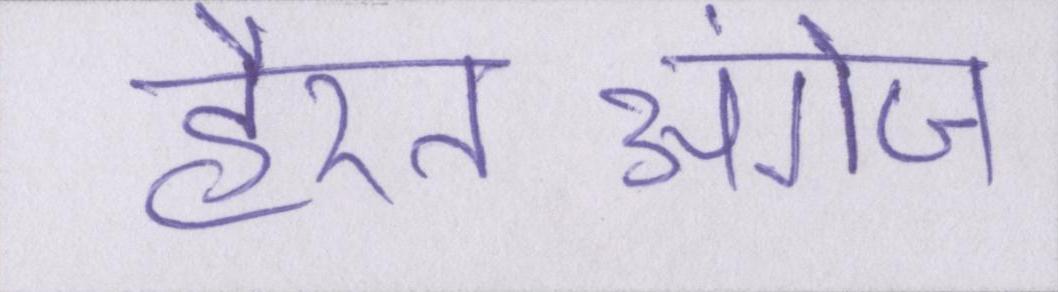 हैरत अंगेज